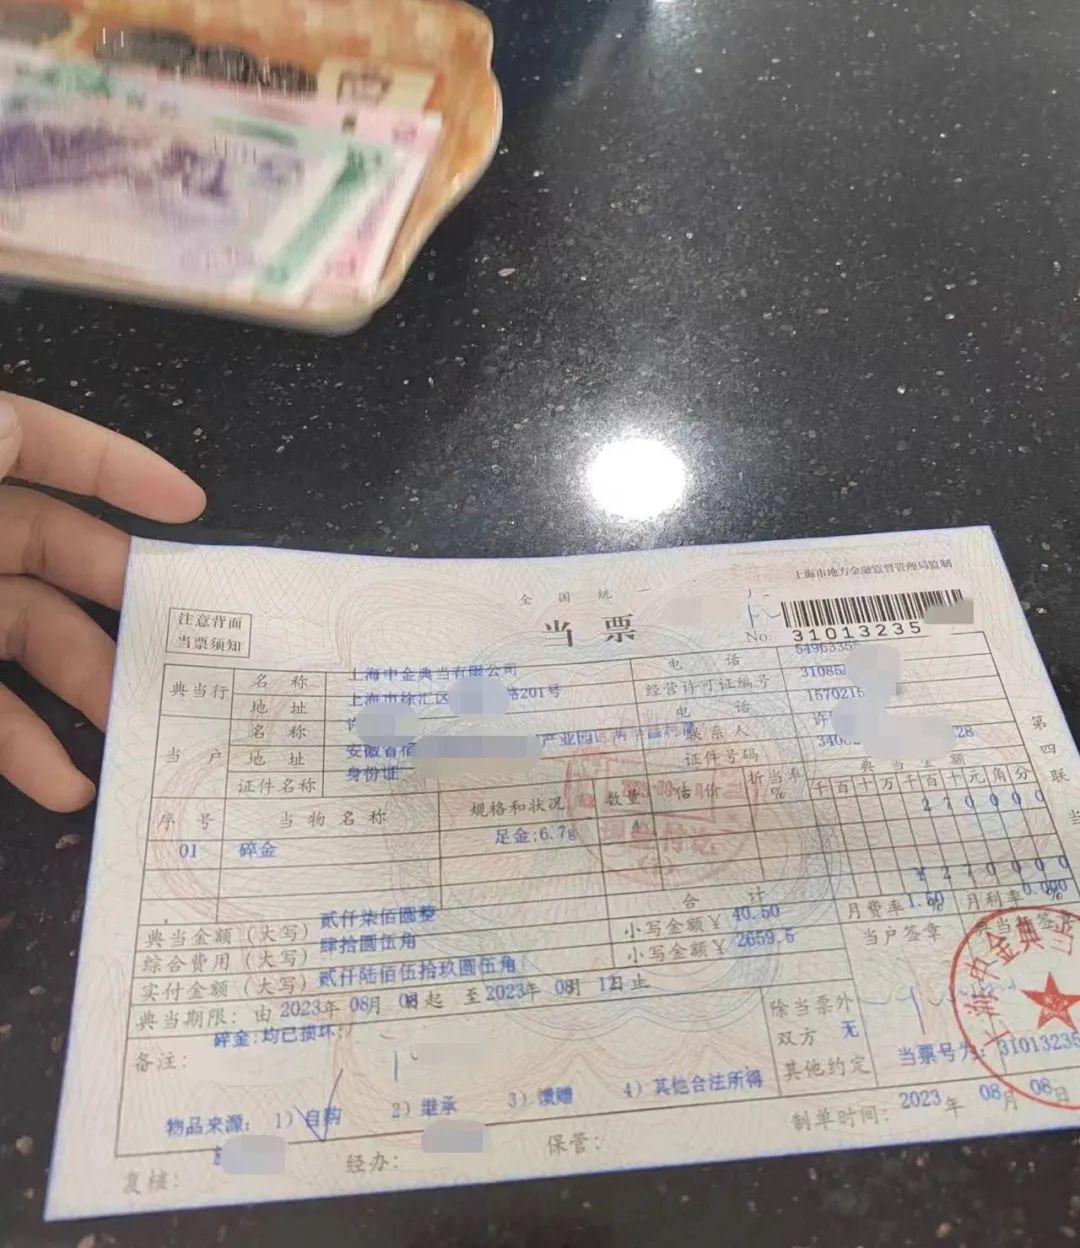 上海市地方金融监督管理局监制
全国统一
当票
注意背面
当票须知
No: 31013235
典当行 名称 上海申金典当有限公司 电话 5496335
地址 上海市徐汇区 路201号 经营许可证编号 3108
当户 名称 许 电话 1570215
地址 安徽省宿 产业园区 联系人 许
证件名称 身份证 证件号码 340 28
序号 当物名称 规格和状况 数量 估价 折当率% 典当金额
千百十万千百十元角分
01 碎金 足金;6.7g 270000
合计 ¥270000
典当金额(大写) 贰仟柒佰圆整
综合费用(大写) 肆拾圆伍角 小写金额¥ 40.50 月费率1.50% 月利率0.000%
实付金额(大写) 贰仟陆佰伍拾玖圆伍角 小写金额¥ 2659.5 当户签章 典当行签章
典当期限: 由 2023年 08月 08日起 至2023年 08月 12日止
备注: 碎金:均已损坏;
除当票外
双方 无
其他约定
当票号为: 31013235
物品来源: 1) 自购 2) 继承 3) 馈赠 4) 其他合法所得
制单时间: 2023年 08月 08日
复核: 经办: 保管:
第四联
上海申金典当